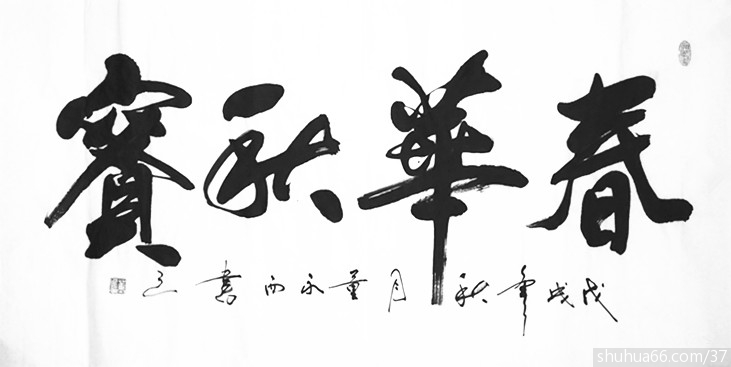 春華秋實
戊戌年秋月董永西書
shuhua66.com/37